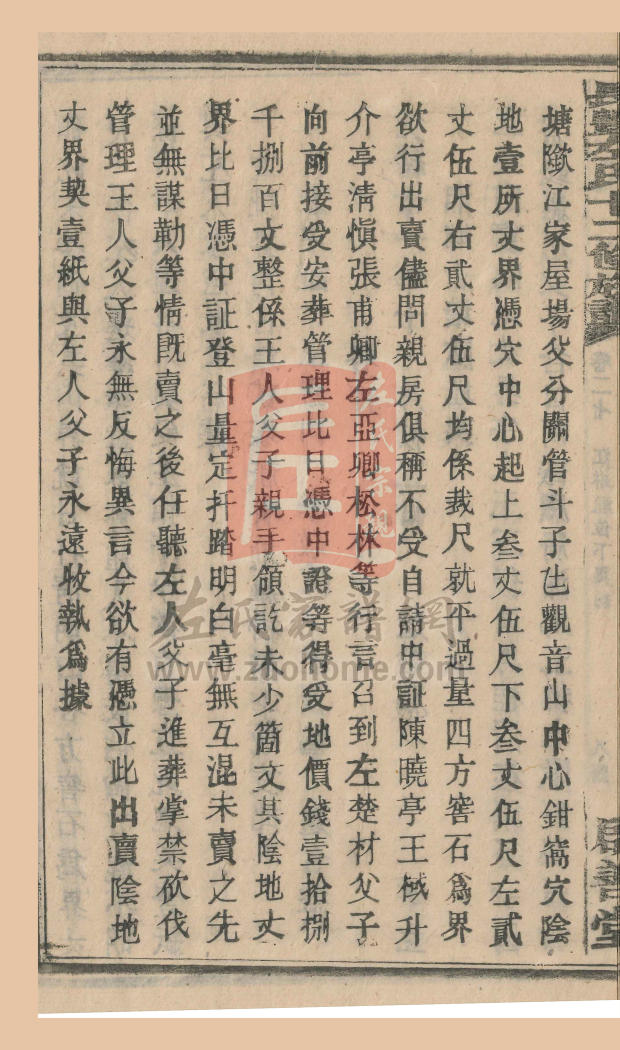 塘隂江家屋場父分關管斗子㐌觀音山中心鉗窩穴陰
地壹所丈界憑穴中心起上叁丈伍尺下叁丈伍尺左貳
丈伍尺右貳丈伍尺均係裁尺就平過量四方窖石爲界
欲行出賣儘問親房俱稱不受自請中証陳曉亭王棫升
介亭清愼張甫卿左亞卿松林等行言召到左楚材父子
向前接受安葬管理比日憑中證等得受地價錢壹拾捌
千捌百文整係王人父子親手領訖未少箇文其陰地丈
界比日憑中証登山量定扦踏明白毫無互混未賣之先
並無謀勒等情旣賣之後任聽左人父子進葬掌禁砍伐
管理王人父子永無反悔異言今欲有憑立此出賣陰地
丈界契壹紙與左人父子永遠收執爲據
左氏十二修族譜
卷二七
左氏宗親
左氏家譜網
www.zuohome.com